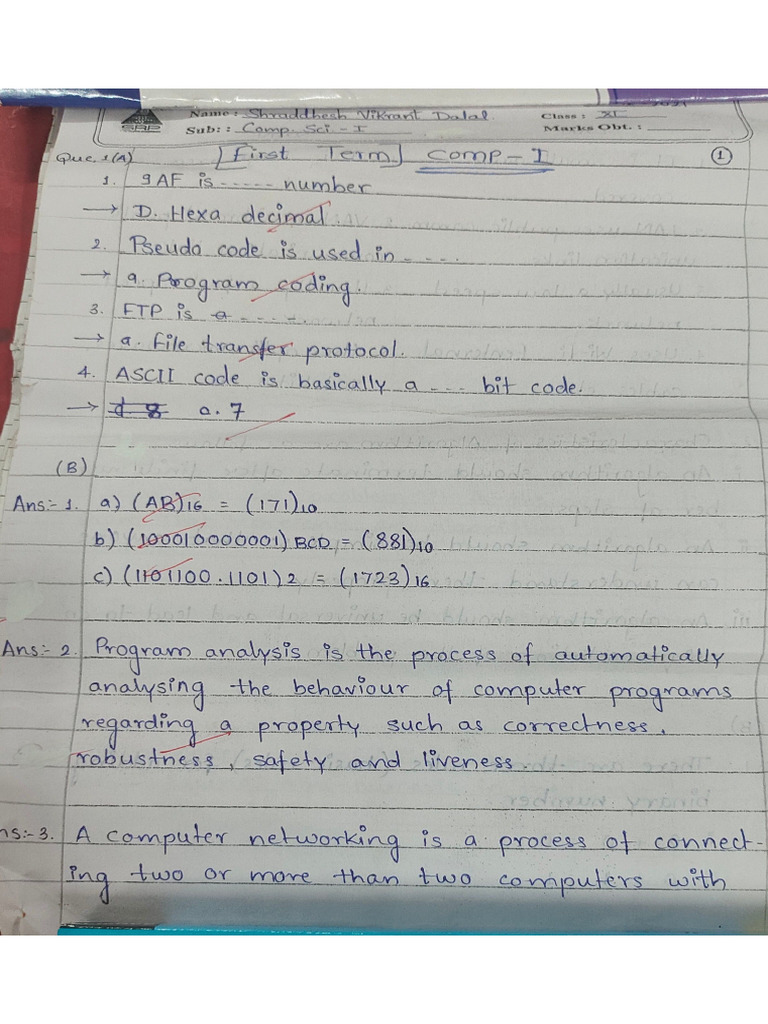 Name : Shraddhesh Vikrant Dalal Class : XI
SRP Sub: : Comp. Sci - I Marks Obt. :
Que. 1(A) First Term COMP - I 1
1. 9AF is ..... number
→ D. Hexa decimal.
2. Pseudo code is used in ....
→ a. Program coding.
3. FTP is a .....
→ a. File transfer protocol.
4. ASCII code is basically a ... bit code.
→ d 8 a. 7
(B)
Ans:- 1. a) (AB)16 = (171)10
b) (100010000001) BCD = (881)10
c) (1101100.1101)2 = (1723)16
Ans:- 2. Program analysis is the process of automatically
analysing the behaviour of computer programs
regarding a property such as correctness,
robustness, safety and liveness
ns:- 3. A computer networking is a process of connect-
ing two or more than two computers with